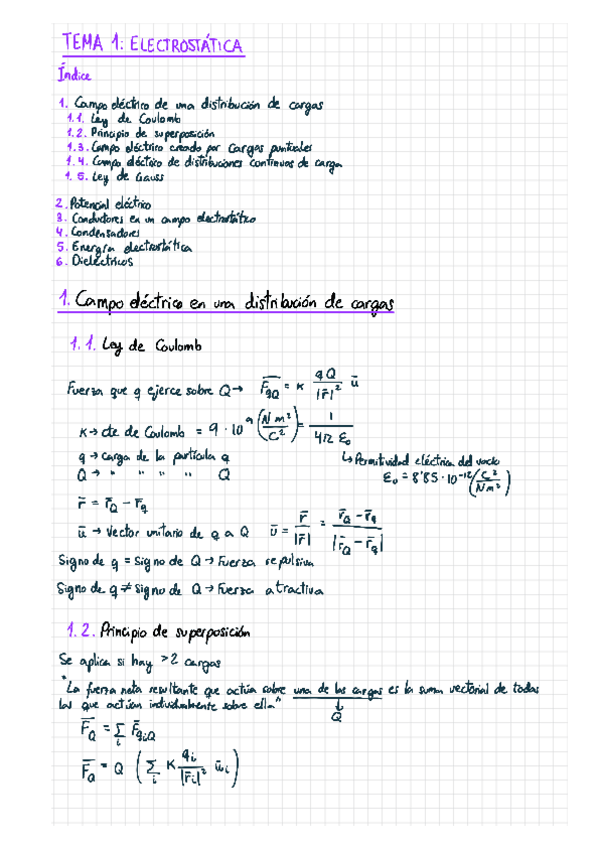 TEMA 1: ELECTROSTÁTICA
Índice
1. Campo eléctrico de una distribución de cargas
1.1. Ley de Coulomb
1.2. Principio de superposición
1.3. Campo eléctrico creado por cargas puntuales
1.4. Campo eléctrico de distribuciones continuas de carga
1.5. Ley de Gauss
2. Potencial eléctrico
3. Conductores en un campo electrostático
4. Condensadores
5. Energía electrostática
6. Dieléctricos
1. Campo eléctrico en una distribución de cargas
1.1. Ley de Coulomb
Fuerza que q ejerce sobre Q → F̄qQ = K qQ/|r̄|² ū
K → cte de Coulomb = 9·10⁹ (Nm²/C²) = 1/4π ε₀
q → carga de la partícula q
↳ Permitividad eléctrica del vacío
Q → " " " " Q
ε₀ = 8'85·10⁻¹² (C²/Nm²)
r̄ = r̄Q - r̄q
ū → Vector unitario de q a Q ū = r̄/|r̄| = r̄Q - r̄q/|r̄Q - r̄q|
Signo de q = Signo de Q → Fuerza repulsiva
Signo de q ≠ Signo de Q → Fuerza atractiva
1.2. Principio de superposición
Se aplica si hay >2 cargas
"La fuerza neta resultante que actúa sobre una de las cargas es la suma vectorial de todas
las que actúan individualmente sobre ella"
↓
Q
F̄Q = Σi F̄qiQ
F̄Q = Q (Σi K qi/|r̄i|² ūi)